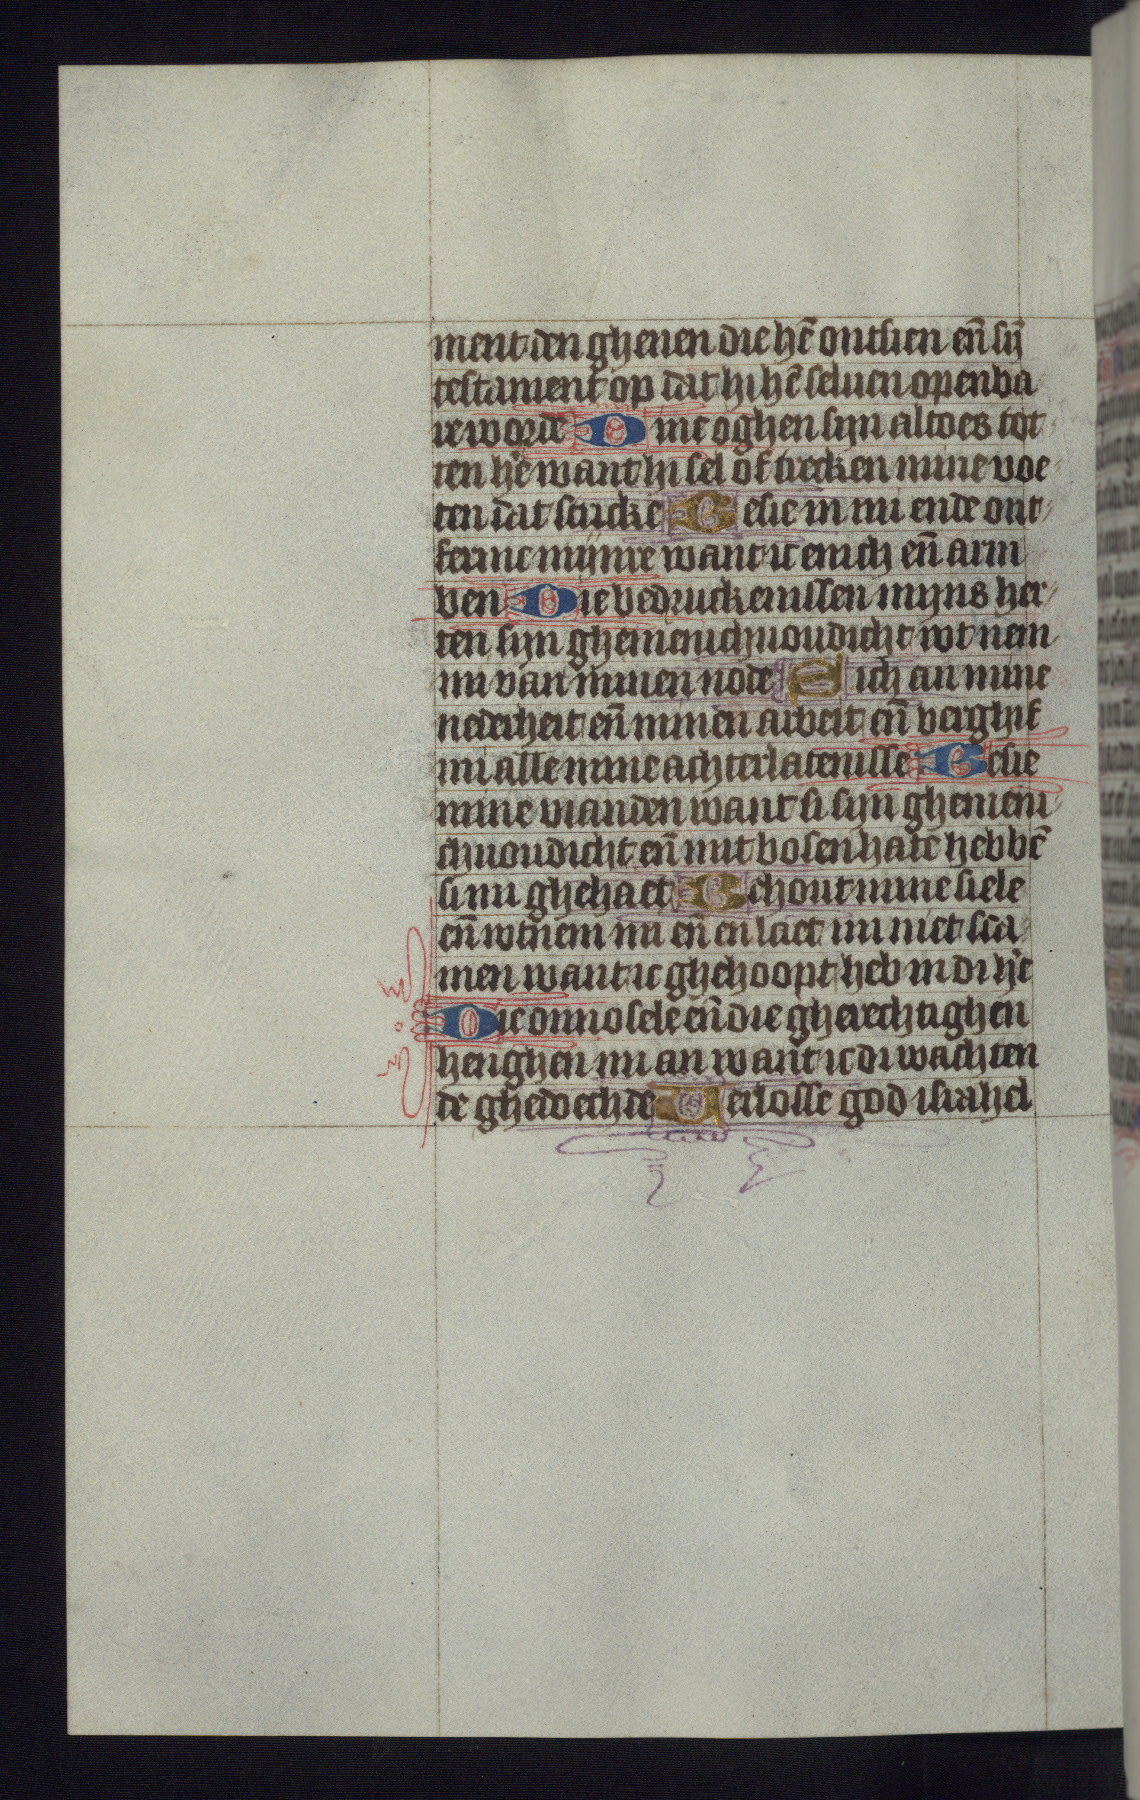 ment den ghenen die hē ontsien en̄ sij̄
testament op dat hi hē seluen openba
re worde Mine oghen sijn altoes tot
ten he᷒e want hi sel of trecken mine voe
ten dat stricke Besie in mi ende ont
ferme mijnre want ic enich en̄ arm
ben Die bedruckenissen mijns her
ten sijn ghemenichuoudicht wt nem
mi van minen node Sich an mine
nederheit en̄ minen arbeit en̄ verghif
mi alle mine achterlatenisse Besie
mine vianden want si sijn ghemeni
chuoudicht en̄ mit bosen hate hebbē
si mi ghehaet Behout mine siele
en̄ wtnem mi en̄ en laet mi niet sca
men want ic ghehoopt heb in di he᷒e
Die onnosele en̄ die gherechtighen
henghen mi an want ic di wachten
de ghedoechde Verlosse god israhel